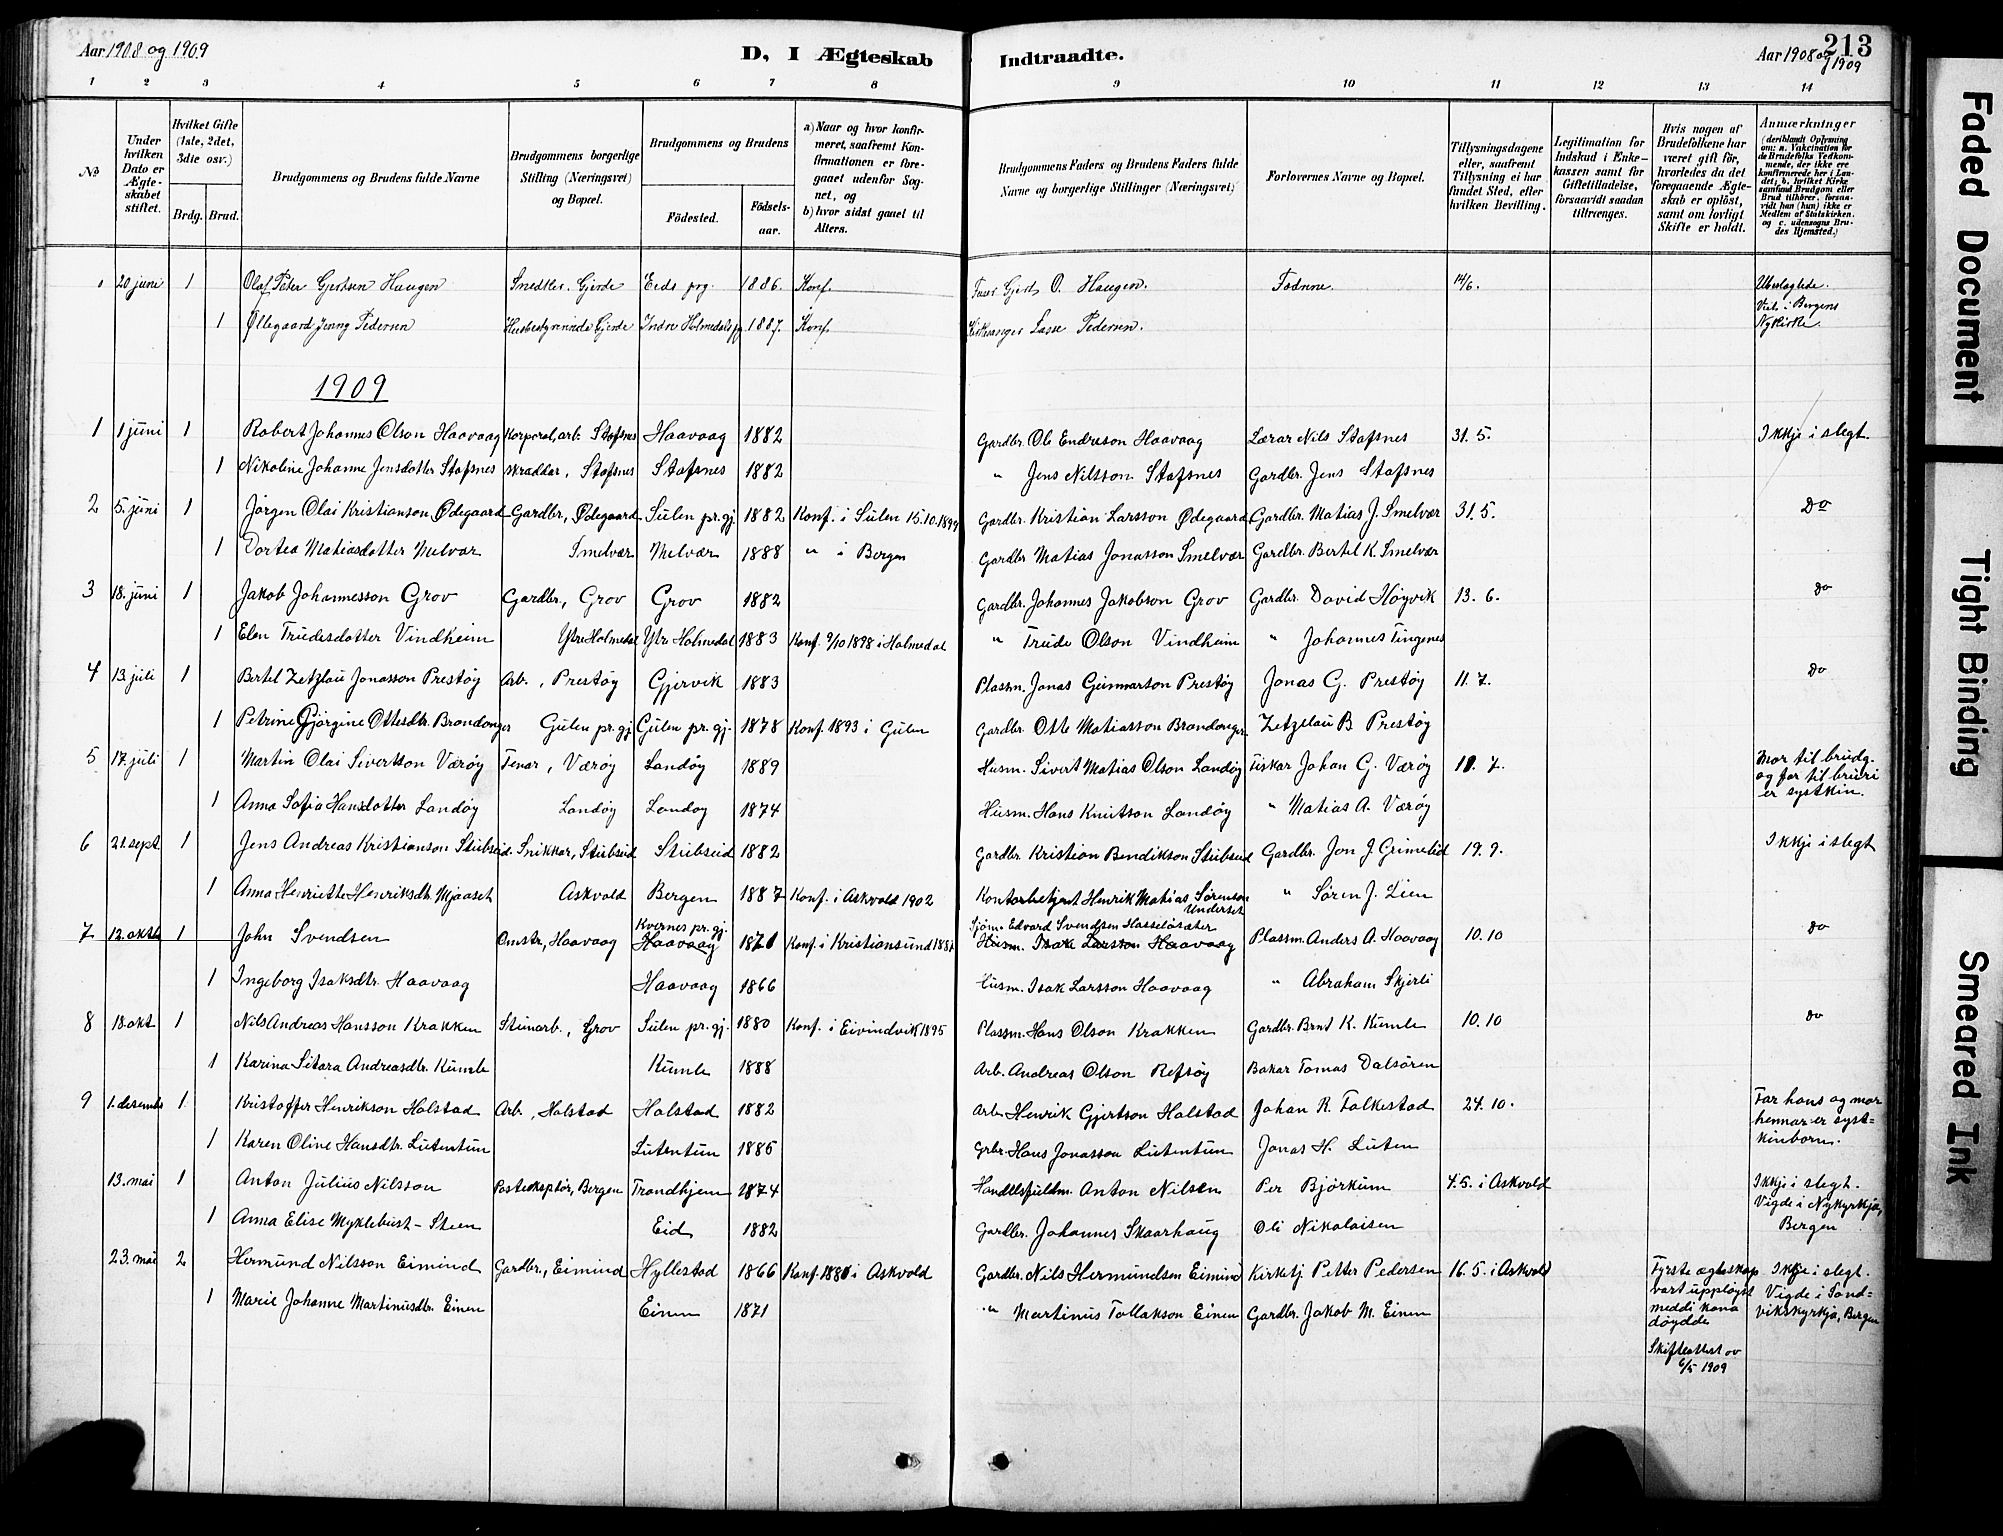 Aar 1908 og 1909
D, I Ægteskab
Indtraadte.
213
Aar 1908 og 1909
1 2 3 4 5 6 7 8 9 10 11 12 13 14
No
Under hvilken Dato er Ægteskabet stiftet.
Hvilket Gifte (1ste, 2det, 3die osv.)
Brdg. Brud.
Brudgommens og Brudens fulde Navne
Brudgommens borgerlige Stilling (Næringsvei) og Bopæl.
Brudgommens og Brudens
Födested.
Födselsaar.
a) Naar og hvor konfirmeret, saafremt Konfirmationen er foregaaet udenfor Sognet, og
b) hvor sidst gaaet til Alters.
Brudgommens Faders og Brudens Faders fulde Navne og borgerlige Stillinger (Næringsvei)
Forlovernes Navne og Bopæl.
Tillysningsdagene eller, saafremt Tillysning ei har fundet Sted, efter hvilken Bevilling.
Legitimation for Indskud i Enkekassen samt for Giftetilladelse, forsaavidt saadan tiltrænges.
Hvis nogen af Brudefolkene har været gift før, hvorledes da det foregaaende Ægteskab er oplöst, samt om lovligt Skifte er holdt.
Anmærkninger (deriblandt Oplysning om: a. Vakcination for de Brudefolks Vedkommende, der ikke ere konfirmerede her i Landet; b. hvilket Kirkesamfund Brudgom eller Brud tilhører, forsaavidt han (hun) ikke er Medlem af Statskirken. og c. udensogns Brudes Hjemsted.)
20 juni 1 Olaf Peter Gjertsen Haugen Snedker. Gjerde Eids prg. 1886. Konf. Gjert O. Haugen. 14/6. Ubeslægtede.
1 Øllegaard Jenny Pedersen Husbestyrerinde Gjerde Indre Holmedals pg 1887. Konf. Kirkesanger Lasse Pedersen. Viet i Bergens Nykirke.
1909
1 1 juni 1 Robert Johannes Olson Haavaag Korporal, arb. Stafsnes Haavaag 1882 Gardbr. Ole Endreson Haavaag Lærar Nils Stafsnes 31.5. Ikkje i slegt.
1 Nikoline Johanne Jensdotter Stafsnes skræddar, Stafsnes Stafsnes 1882 " Jens Nilsson Stafsnes Gardbr. Jens Stafsnes
2 5. juni 1 Jørgen Olai Kristianson Ødegaard Gardbr, Ødegaard Sulen pr.gj. 1882 Konf. i Sulen 15.10.1899 Gardbr. Kristian Larsson Ødegaard Gardbr. Matias J. Smelvær 31.5. Do
1 Dortea Matiasdotter Melvær Smelvær Melvær 1888 " i Bergen Gardbr Matias Jonasson Smelvær Gardbr. Bertel K. Smelvær
3 18. juni 1 Jakob Johannesson Grov Gardbr, Grov Grov 1882 Gardbr. Johannes Jakobson Grov Gardbr. David Høyvik 13.6. Do
1 Elen Trudesdotter Vindheim Ytre Holmedal Ytre Holmedal 1883 Konf. 9/10 1898 i Holmedal " Trude Olson Vindheim " Johannes Tingenes
4 13. juli 1 Bertel Zetzlau Jonasson Prestøy Arb., Prestøy Gjervik 1883 Plassm. Jonas Gunnarson Prestøy Jonas G. Prestøy 11.7. Do
1 Petrine Gjørgine Ottesdtr. Brandanger Gulen pr.gj Gulen pr.gj. 1878 Konf. 1893 i Gulen Gardbr. Otte Matiasson Brandanger Zetzlau B Prestøy
5 17. juli 1 Martin Olai Sivertson Værøy Tenar, Værøy Landøy 1889 Husm. Sivert Matias Olson Landøy Fiskar Johan G. Værøy 11.7. Mor til brudg. og far til bruri er syskin.
1 Anna Sofia Hansdotter Landøy Landøy Landøy 1874 Husm. Hans Knutson Landøy " Matias A. Værøy
6 21. sept 1 Jens Andreas Kristianson Stubseid Snikkar, Stubseid Stubseid 1882 Gardbr. Kristian Bendikson Stubseid Gardbr. Jon J Grimelid 19.9. Ikkje i slegt
1 Anna Henriette Henriksdtr. Mjaaset Askvold Bergen 1887 Konf. i Askvold 1902 Kontorbetjent Henrik Matias Sørenson Underset " Søren J. Lien
7 12. okt 1 John Svendsen Omstr, Haavaag Kvernes pr.gj. Haavaag 1871 Konf. i Kristiansund Sjøm. Edvard Svendsen Hasseløsæter Husm. Isak Larsson Haavaag Plassm. Anders A. Haavaag 10.10 Do
1 Ingeborg Isaksdtr. Haavaag Haavaag 1866 Husm. Isak Larsson Haavaag " Abraham Skjerli
8 18. okt 1 Nils Andreas Hansson Krakken Steinarb., Grov Sulen pr.gj. 1880 Konf. i Eivindvik 1895 Plassm. Hans Olson Krakken Gardbr. Brnt K. Kumle 10.10 Do
1 Karina Sitara Andreasdtr. Kumle Kumle 1888 Arb. Andreas Olson Refsøy Bakar Tomas Dalsøren
9 1. desembr 1 Kristoffer Henrikson Halstad Arb., Halstad Halstad 1882 Arb. Henrik Gjertson Halstad Johan R. Falkestad 24.10. Far hans og mor hennar er systkinborn.
1 Karen Oline Hansdtr. Lutentun Lutentun 1886 Grbr. Hans Jonasson Lutentun Jonas H. Luten
13. mai 1 Anton Julius Nilsson Postekspeditør, Bergen Trondhjem 1874 Handelsfuldm. Anton Nilsen Per Bjørkum 4.5. i Askvold Ikkje i slegt. Vigde i Nykyrkja, Bergen
1 Anna Elise Myklebust-Steen Eid 1882 Gardbr. Johannes Skaarhaug Oli Nikolaisen
23. mai 2 Hermund Nilsson Eimind Gardbr., Eimind Hyllestad 1866 Konf. 1881 i Askvold Gardbr. Nils Hermundsen Eimind Kirketj Petter Pedersen 16.5. i Askvold Fyrste ægteskap vart uppløyst meddi kona døydde Ikkje i slegt. Vigde i Sandvikskyrkja, Bergen
1 Marie Johanne Martinusdtr. Einen Einen 1871 " Martinus Tollakson Einen Gardbr. Jakob M. Einen
Skifteattest ov 6/5 1909
Faded Document
Tight Binding
Smeared Ink